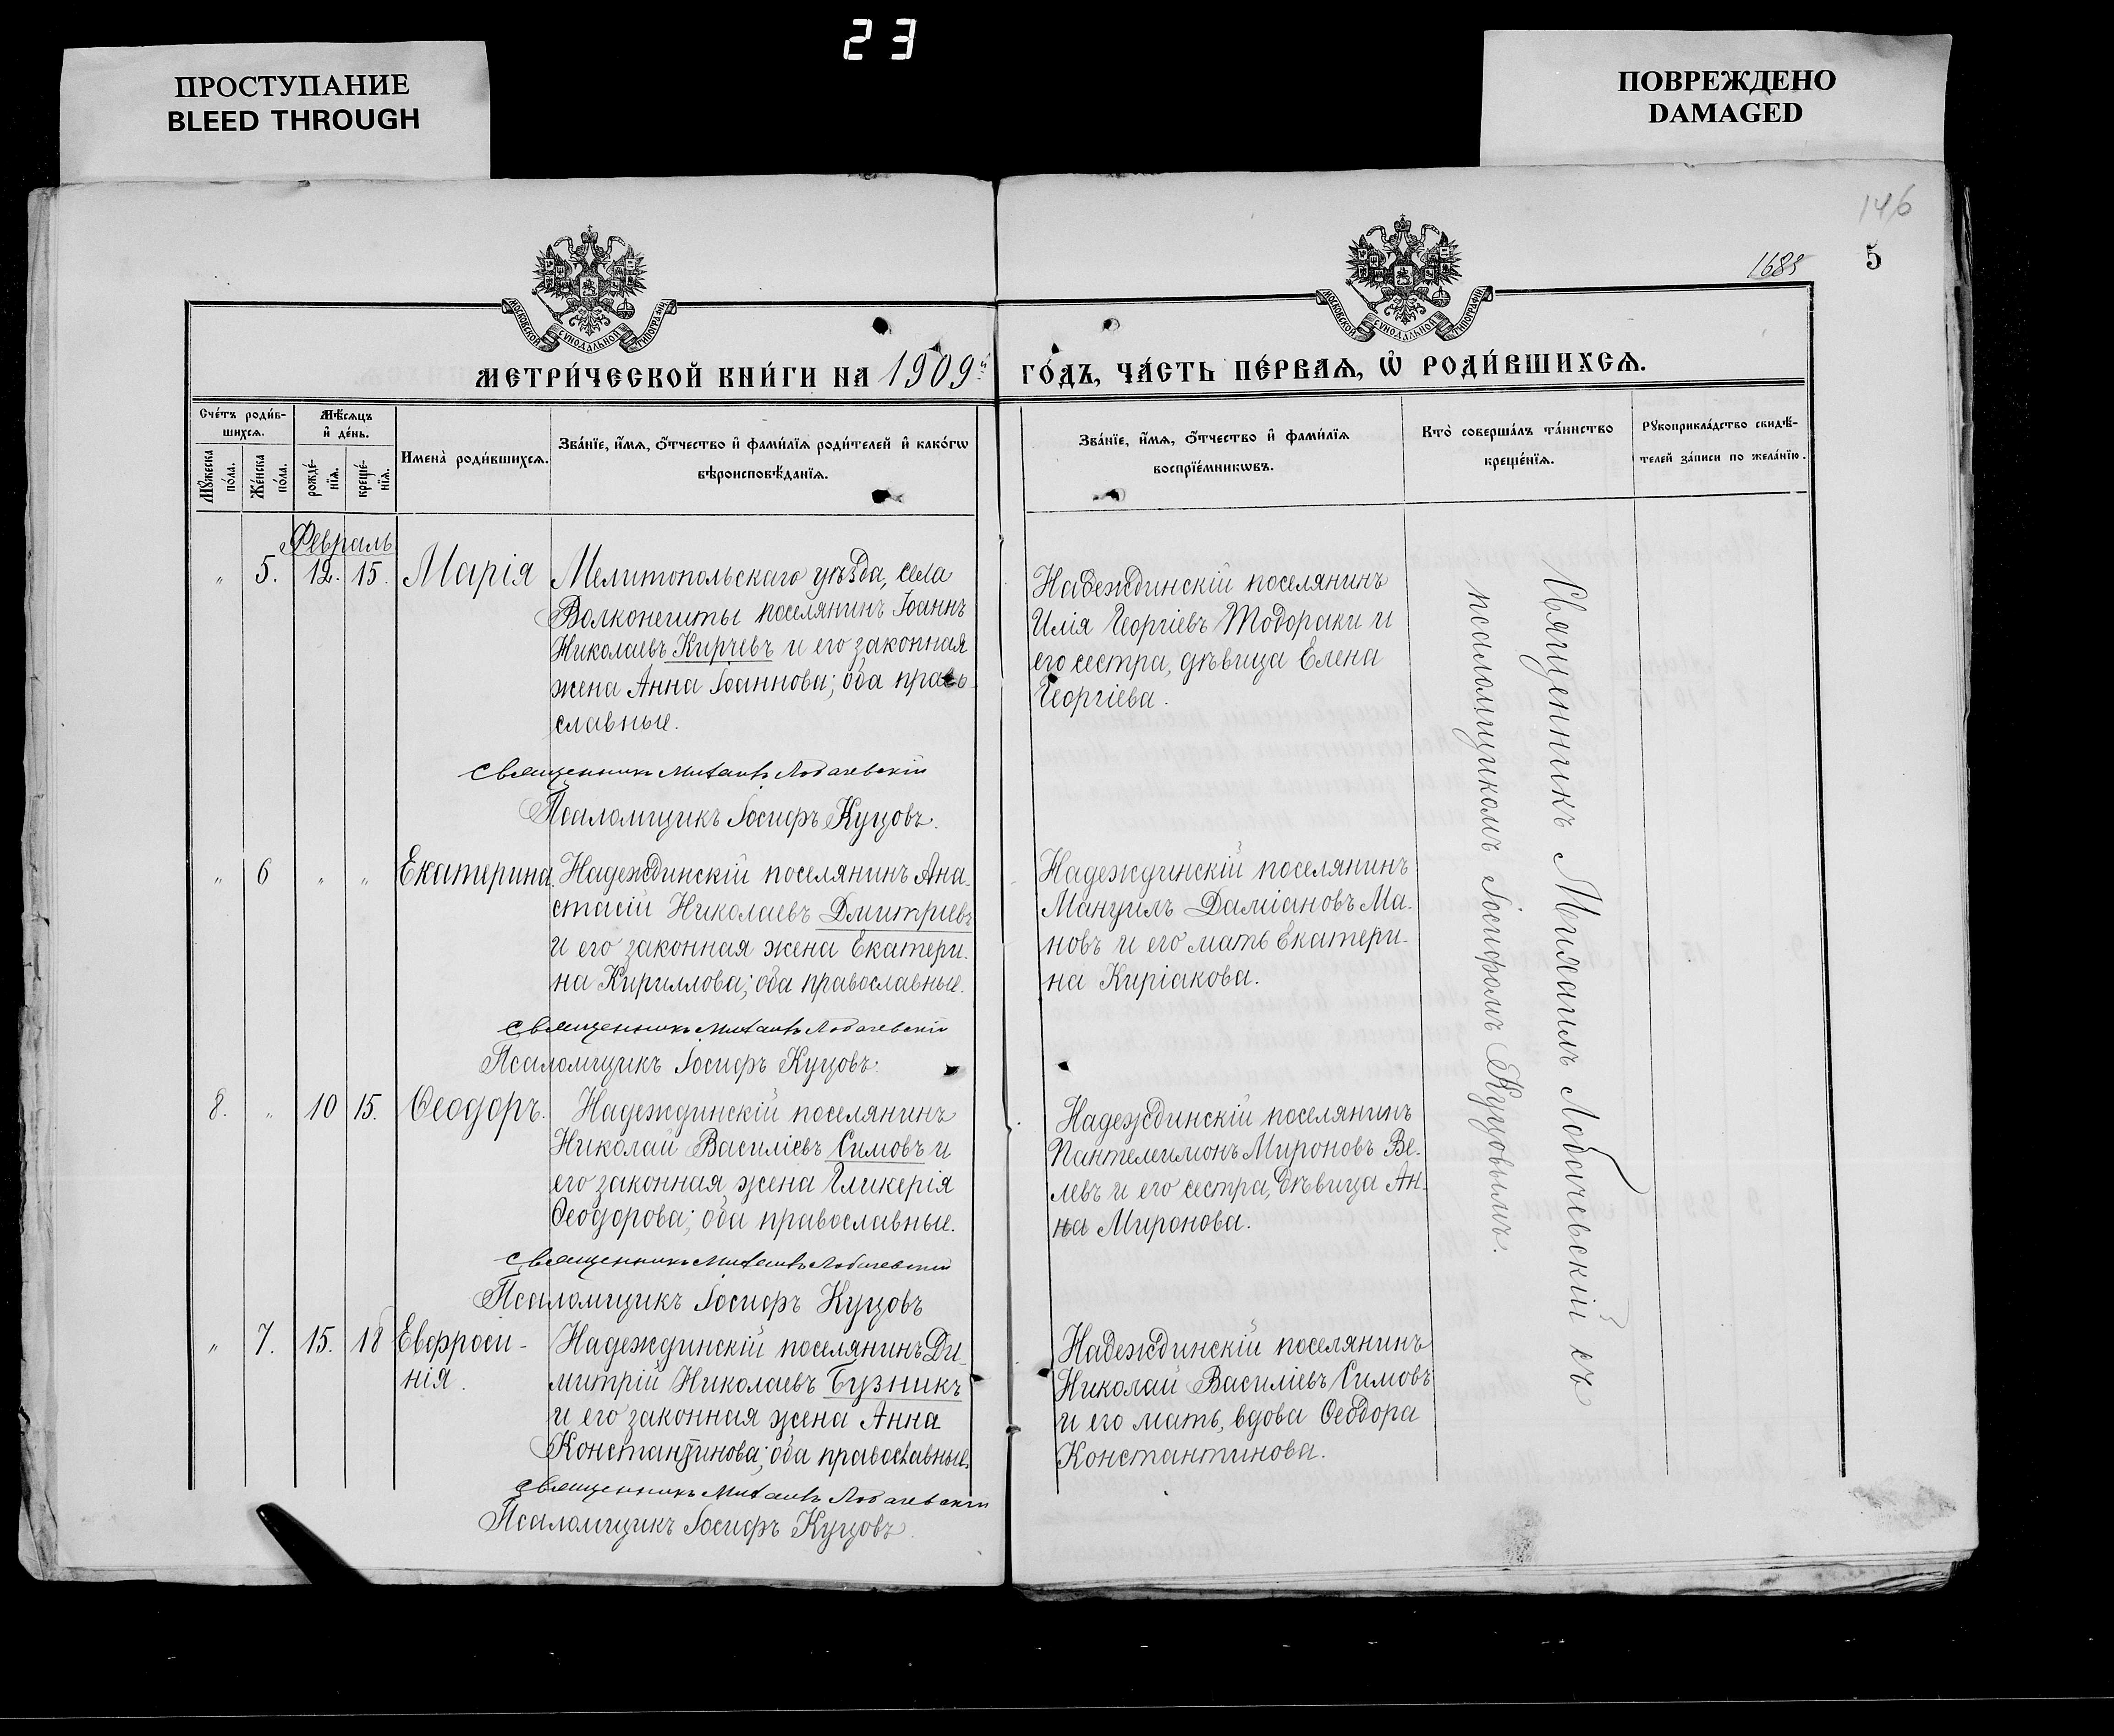 23
ПРОСТУПАНИЕ
BLEED THROUGH
ПОВРЕЖДЕНО
DAMAGED
146
5
МОСКОВСКОЙ СѴНОДАЛЬНОЙ ТИПОГРАФІИ
МОСКОВСКОЙ СѴНОДАЛЬНОЙ ТИПОГРАФІИ
МЕТРИ́ЧЕСКОЙ КНИ́ГИ НА 1909й ГО́ДЪ, ЧА́СТЬ ПЕ́РВАѦ, Ѡ҆ РОДИ́ВШИХСѦ.
Сче́тъ роди́в-
шихсѧ.
Мꙋ́жеска
по́ла.
Же́нска
по́ла.
Мѣ́сѧцъ
и҆ де́нь.
рожде́-
нїѧ.
креще́-
нїѧ.
Имена̀ роди́вшихсѧ.
Зва́нїе, и҆́мѧ, ѻ҆́тчество и҆ фами́лїѧ роди́телей и҆ како́гѡ
вѣроисповѣ́данїѧ.
Зва́нїе, и҆́мѧ, ѻ҆́тчество и҆ фами́лїѧ
воспрїе́мникѡвъ.
Кто̀ соверша́лъ та́инство
креще́нїѧ.
Рꙋкоприкла́дство свидѣ́-
телей за́писи по жела́нїю.
Февраль
" 5. 12. 15. Марія
Мелитопольскаго уѣзда, села
поселянинъ Іоаннъ
Николаевъ Кирчевъ и его законная
жена Анна Іоаннова; оба право-
славные.
Священникъ Михаилъ Лобачевскій
Псаломщикъ Іосифъ Куцовъ.
Надеждинскій поселянинъ
Илія Георгіевъ Тодораки и
его сестра, дѣвица Елена
Георгіева.
" 6 " " Екатерина.
Надеждинскій поселянинъ Ана-
стасій Николаевъ Дмитріевъ
и его законная жена Екатери-
на Кириллова; оба православные.
Священникъ Михаилъ Лобачевскій
Псаломщикъ Іосифъ Куцовъ.
Надеждинскій поселянинъ
Мануилъ Даміановъ Ма-
новъ и его мать Екатери-
на Киріакова.
8. " 10 15. Ѳеодоръ.
Надеждинскій поселянинъ
Николай Василіевъ Симовъ и
его законная жена Гликерія
Ѳеодорова; оба православные.
Священникъ Михаилъ Лобачевскій
Псаломщикъ Іосифъ Куцовъ
Надеждинскій поселянинъ
Пантелеимонъ Мироновъ Ве-
левъ и его сестра, дѣвица Ан-
на Миронова.
" 7. 15. 18 Евфроси-
нія.
Надеждинскій поселянинъ Ди-
митрій Николаевъ Бузникъ
и его законная жена Анна
Константинова; оба православные.
Священникъ Михаилъ Лобачевскій
Псаломщикъ Іосифъ Куцовъ.
Надеждинскій поселянинъ
Николай Василіевъ Симовъ
и его мать, вдова Ѳеодора
Константинова.
Священникъ Михаилъ Лобачевскій съ
псаломщикомъ Іосифомъ Куцовымъ.